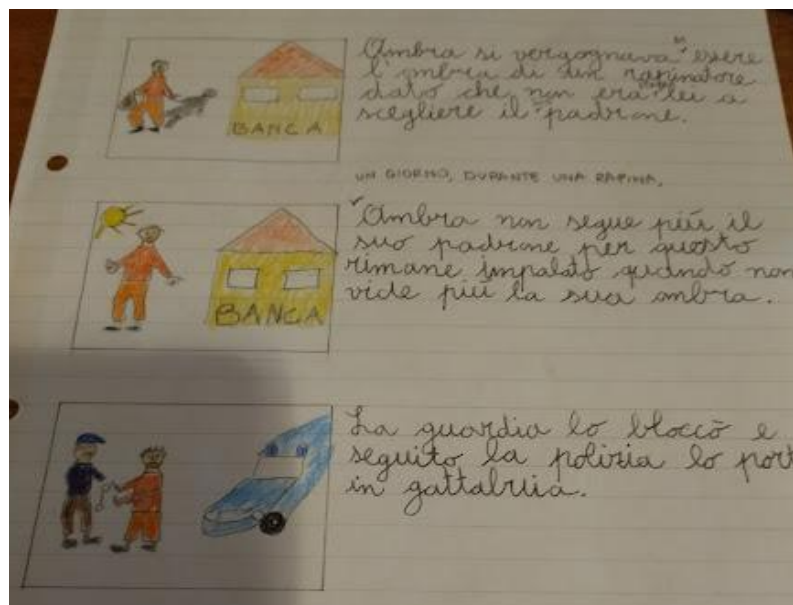 Ambra si vergognava essere
l'ombra di un rapinatore
dato che non era lei a
scegliere il padrone.
BANCA
UN GIORNO, DURANTE UNA RAPINA,
Ambra non segue più il
suo padrone per questo
rimane impalato quando non
vide più la sua ombra.
BANCA
La guardia lo bloccò e
seguito la polizia lo port
in gattabuia.